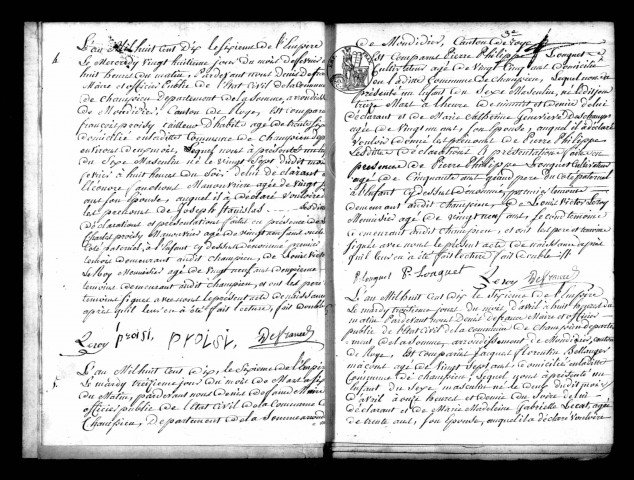 L'an Mil huit Cent Dix le sixieme de l'Empire
Le Mercredy vingt huitieme jour du mois de fevrier à
huit heures du matin, Pardevant nous Denis Defrance
Maire et officier Public de l'Etat Civil de la Commune
de Champien departement de la Somme, arrondissement
de Mondidier Canton de Roye, est Comparu
françois proisy tailleur d'habits, age de trente six
domicilie en laditte Commune de Champien
Lequel nous à présenté un
Du Sexe Masculin né le vingt sept dudit mois
à huit heures du Soir de lui déclarant
Eleonore fauchon Manouvriere agée de vingt
ans son épouse, auquel il à déclaré vouloir
les prenoms de Joseph Stanislas
déclarations et présentations faites en présence de
Charles proisy Manouvrier age de vingt
Coté paternel, à l'Enfant Cy dessus denommé premier
temoin demeurant audit Champien, de Louis Victor
LeRoy Menuisier age de vingt neuf ans deuxieme
temoin demeurant audit Champien, et ont les pere
temoins signes avec nous le présent acte de naissance
après qu'il leur en à été fait lecture, fait double
Leroy proisi, Proisy, Defrance
L'an Mil huit Cent Dix, le sixieme de l'Empire
Le mardy treizieme jour du mois de Mars à
du Matin, pardevant nous Denis Defrance Maire
officier public de l'Etat Civil de la Commune de
Champien, Departement de la Somme arrondissement
de Mondidier, Canton de Roye
Est Comparu Pierre Philippe Longuet
Cultivateur age de vingt cinq ans domicilié
en laditte Commune de Champien, Lequel nous à
présenté un Enfant du Sexe Masculin, né le dit jour
treize Mars à heure de minuit et demie de lui
déclarant et de Marie Catherine Genevieve Deschamps
agée de vingt un ans, son épouse, auquel il à déclaré
vouloir donner les prenoms de Pierre Philippe
Lesdittes déclarations et présentations faites en
présence de Pierre Philippe Longuet Cultivateur
agé de Cinquante ans grand pere du coté paternel
à l'Enfant Cy dessus denommé, premier temoin
demeurant audit Champien, de Louis Victor Leroy
Menuisier age de vingt neuf ans, second temoin
demeurant audit Champien, et ont les pere et temoins
signés avec nous le présent acte de naissance après
qu'il leur en à été fait lecture fait double
P Longuet P. Longuet Leroy Defrance
L'an Mil huit Cent dix le sixieme de l'Empire
Le mardy treizieme jour du mois d'avril à huit heures du
matin Pardevant nous Denis Defrance Maire et officier
public de l'Etat Civil de la commune de Champien departe
ment de la Somme, arrondissement de Mondidier, canton
de Roye, Est Comparu Jacques Florentin Bellanger
macon age de vingt Sept ans, domicilié en laditte
Commune de Champien, Lequel nous à présenté un
Enfant du Sexe masculin né le Onze dudit mois
d'avril à onze heures et demie du Soir de lui
déclarant et de Marie Madeleine Gabrielle Lecat, agée
de trente ans, son épouse, auquel il à déclaré vouloir